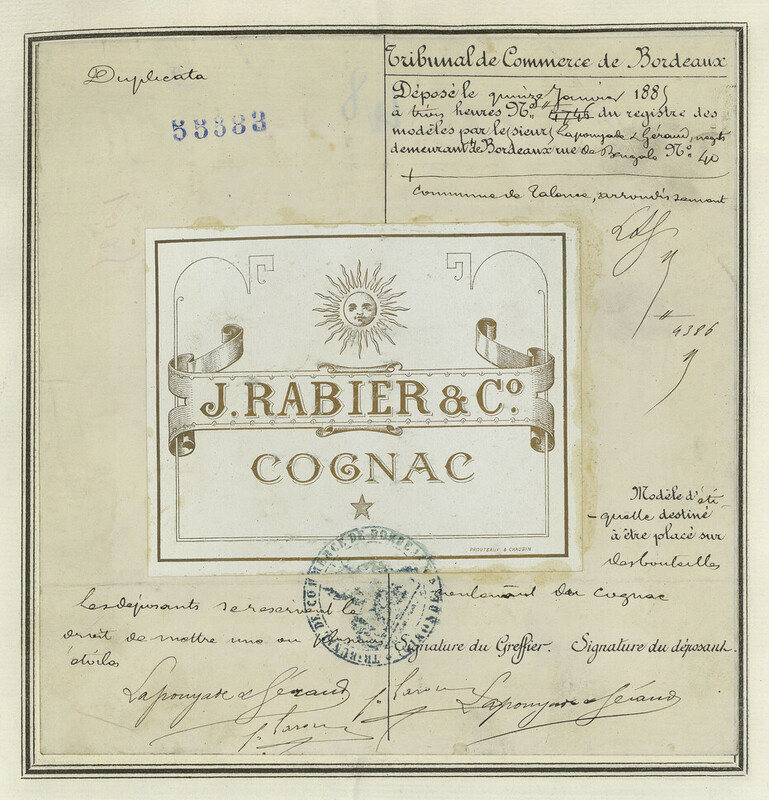 Duplicata
55383
Tribunal de Commerce de Bordeaux
Déposé le quinze Janvier 1885
à trois heures N° 4746 du registre des
modèles par le sieurs Lapouyade & Géraud, negts
demeurant à Bordeaux rue de Bengale N° 40
Commune de Talence, arrondissement
4386
J. RABIER & Cº.
COGNAC
PROUTEAUX & CHAUBIN
Modèle d'éti
-quette destiné
à être placé sur
des bouteilles
contenant du cognac
TRIBUNAL DE COMMERCE DE BORDEAUX
Les déposants se reservent le
droit de mettre une ou plusieurs
étoiles
Signature du Greffier. Signature du déposant.
Lapouyade & Géraud
Lapouyade & Géraud